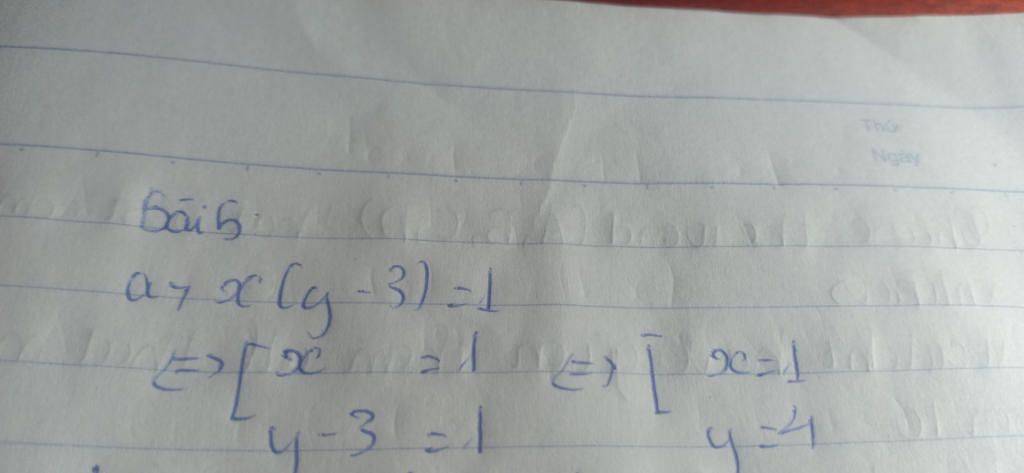 Thứ
Ngày
Bài 5:
a, x(y-3)=1
<=> [ x =1 <=> [ x=1
y-3 =1 y=4